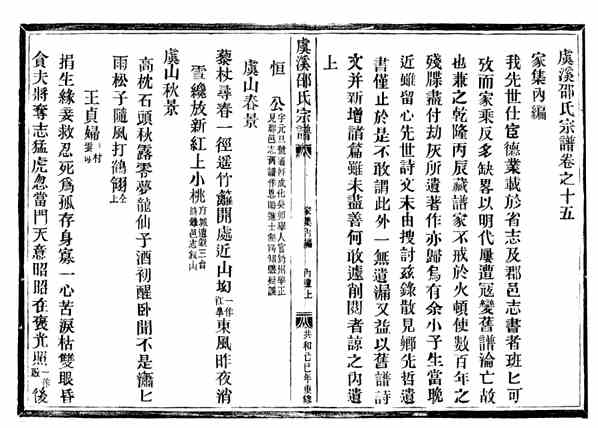 虞溪邵氏宗譜卷之十五
家集內編
我先世仕宦德業載於省志及郡邑志書者班匕可
攷而家乘反多缺畧以明代屢遭寇變舊譜淪亡故
也兼之乾隆丙辰藏譜家不戒於火頓使數百年之
殘牒盡付劫灰所遺著作亦歸烏有余小子生當晚
近雖留心先世詩文末由搜討茲錄散見鄉先哲遺
書僅止於是不敢謂此外一無遺漏又益以舊譜詩
文并新增諸篇雖未盡善何敢遽削閱者諒之內遺
上
虞溪邵氏宗譜
家集內編
內遺上
共和己巳年重修
恒公
虞山春景
藜杖尋春一徑遥竹籬開處近山坳一作東風昨夜消
雪纔放新紅上小桃
虞山秋景
高枕石頭秋露零夢龍仙子酒初醒卧聞不是簫匕
雨松子隨風打鶴翎
王貞婦
捐生緣義救忍死爲孤存身寡一心苦淚枯雙眼昏
貪夫將奪志猛虎忽當門天意昭昭在褒光照後